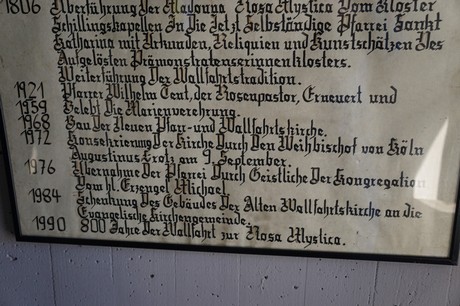 1806 Überführung der Madonna Rosa Mystica vom Kloster
Schillingskapellen in die jetzt selbständige Pfarrei Sankt
Katharina mit Urkunden, Reliquien und Kunstschätzen des
Aufgelösten Prämonstratenserinnenklosters.
Weiterführung der Wallfahrtstradition.
1921 Pfarrer Wilhelm Tent, der Rosenpastor, Erneuert und
1959 Belebt die Marienverehrung.
1968 Bau der Neuen Pfarr- und Wallfahrtskirche.
1972 Konsekrierung der Kirche durch den Weihbischof von Köln
Augustinus Frotz am 9. September.
1976 Übernahme der Pfarrei durch Geistliche der Kongregation
vom hl. Erzengel Michael
1984 Schenkung des Gebäudes der Alten Wallfahrtskirche an die
Evangelische Kirchengemeinde.
1990 800 Jahre der Wallfahrt zur Rosa Mystica.